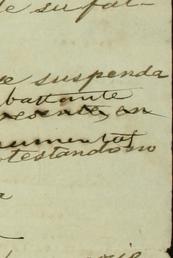 de su fal-
se suspenda
bastante
presente, en
numental
otestando no
a